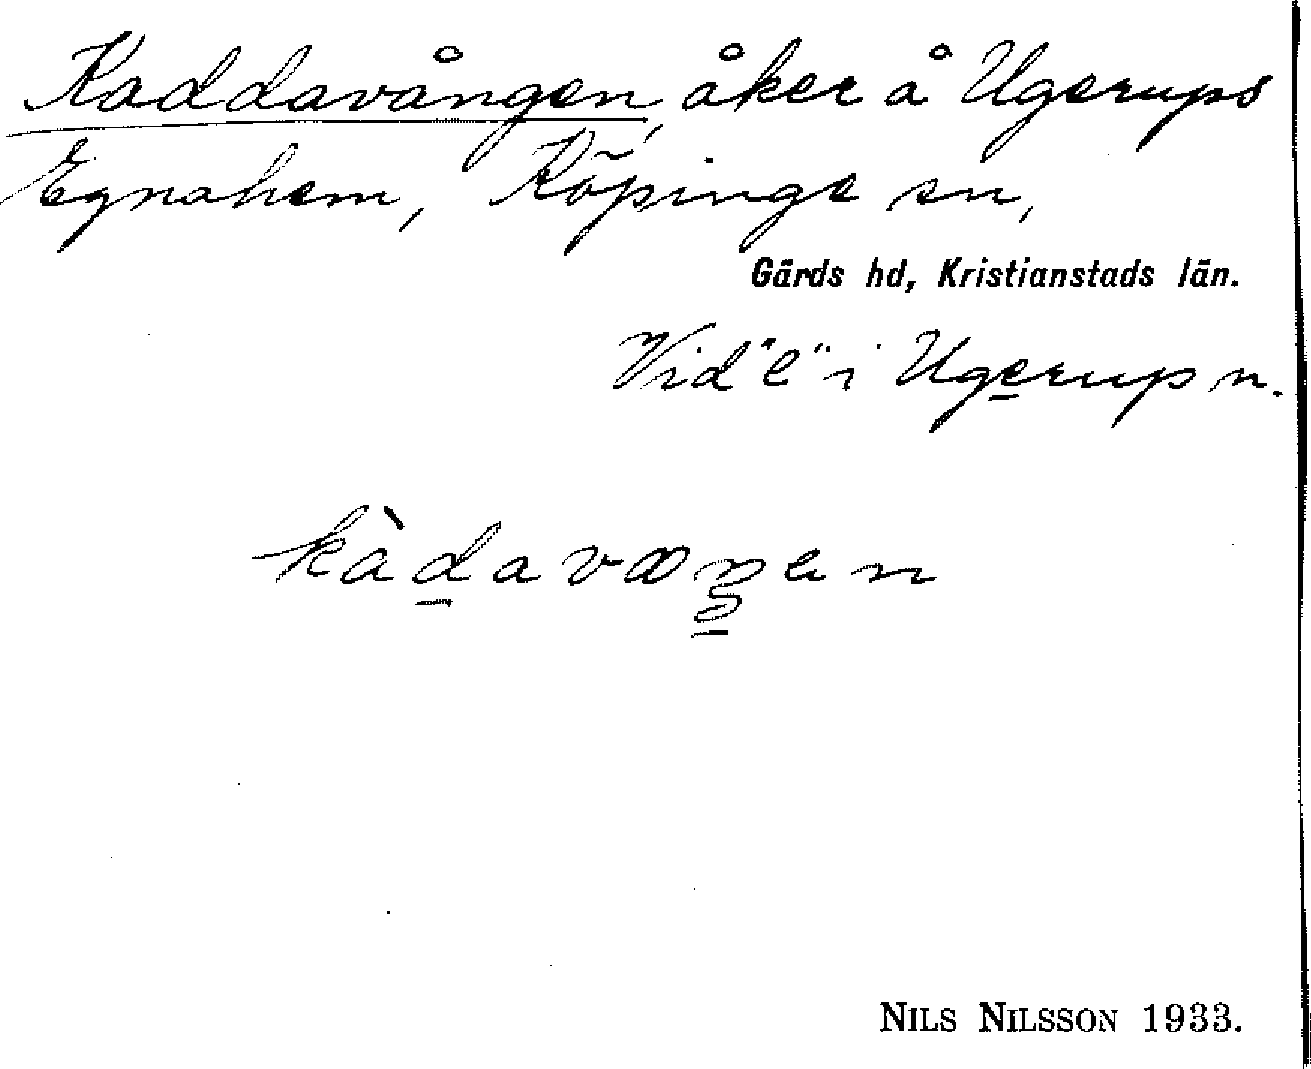 Kaddavången, åker å Ugerups
Egnahem, Köpinge sn,
Gärds hd, Kristianstads län.
Vid "e" i Ugerup n.
kàdavæŋen
NILS NILSSON 1933.